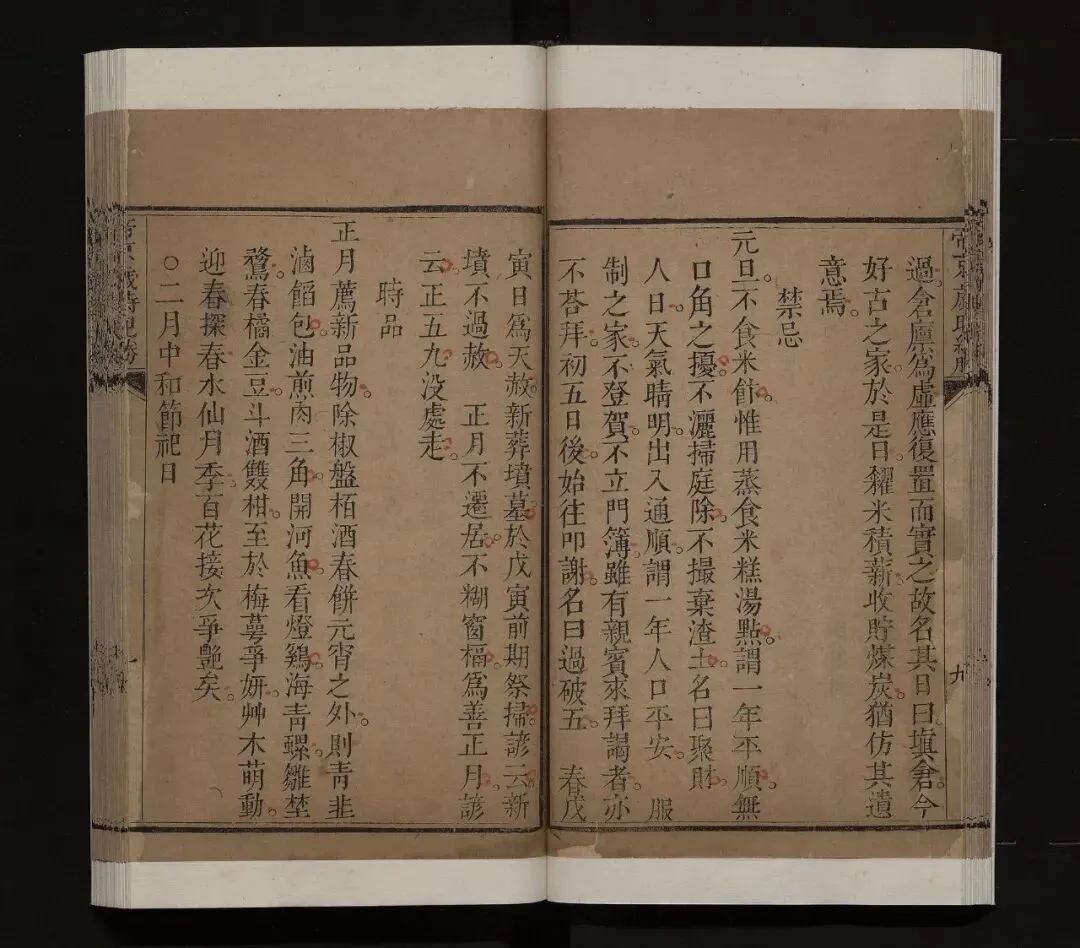 過倉廪爲虛應復置而實之故名其日曰塡倉今
好古之家於是日糴米積薪收貯煤炭猶仿其遺
意焉
禁忌
元旦不食米飰惟用蒸食米糕湯點謂一年平順無
口角之擾不灑掃庭除不撮棄渣土名曰聚財
人日天氣晴明出入通順謂一年人口平安 服
制之家不登賀不立門簿雖有親賓來拜謁者亦
不荅拜初五日後始往叩謝名曰過破五 春戊
寅日爲天赦新葬墳墓於戊寅前期祭掃諺云新
墳不過赦 正月不遷居不糊窗槅爲善正月諺
云正五九没處走
時品
正月薦新品物除椒盤栢酒春餅元宵之外則青韭
滷餡包油煎肉三角開河魚看燈鷄海青螺雛埜
鶩春橘金豆斗酒雙柑至於梅蕚爭妍艸木萌動
迎春探春水仙月季百花接次爭艶矣
○二月中和節祀日
帝京歲時紀勝
九